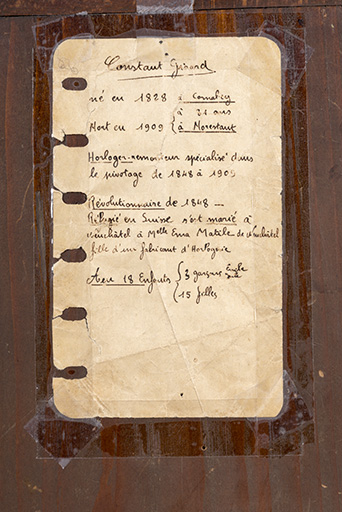 Constant Girard
né en 1828 à Cornabiy
à 81 ans
Mort en 1909 à Morestant
Horloger-remonteur spécialisé dans
le pivotage de 1848 à 1909
Révolutionnaire de 1848 —
Réfugié en Suisse s'est marié à
Neuchâtel à Melle Ema Matile de Neuchâtel
fille d'un fabricant d'Horlogerie
A eu 18 Enfants 3 garçons
15 filles